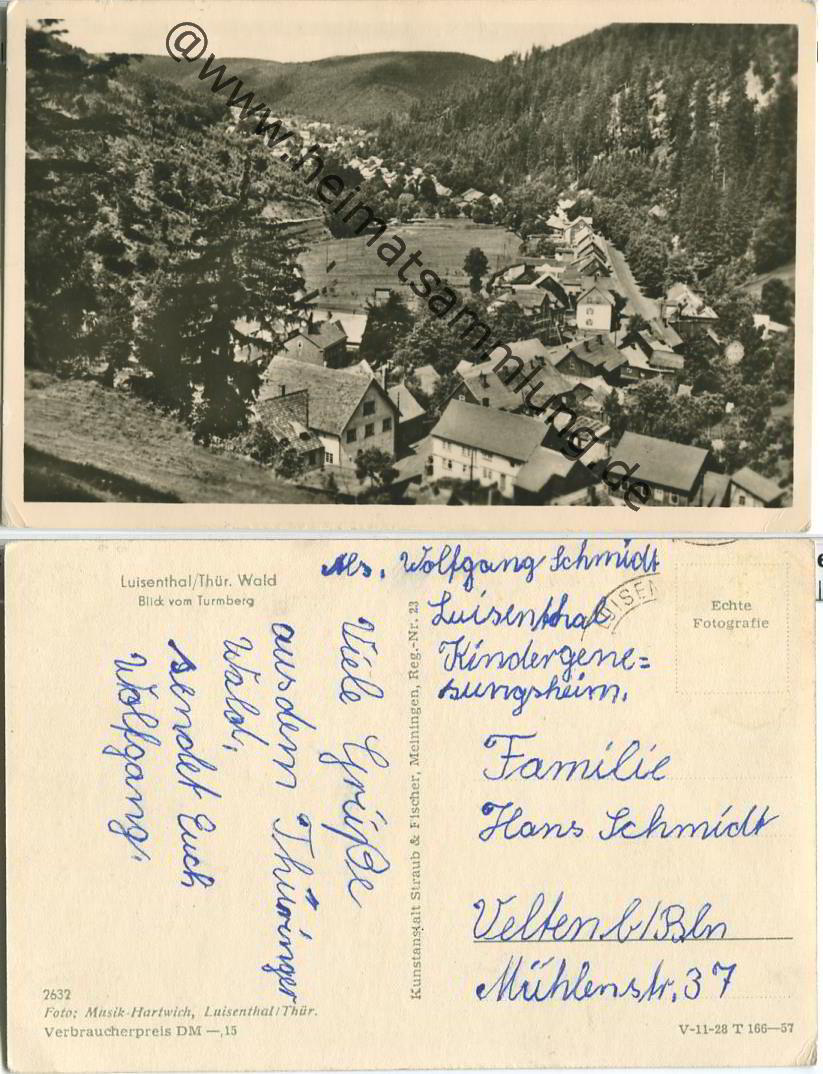 @www.heimatsammlung.de
Luisenthal/Thür. Wald
Blick vom Turmberg
Abs. Wolfgang Schmidt
Luisenthal
Kindergene=
sungsheim.
LUISEN
Echte
Fotografie
Viele Grüße
aus dem Thüringer
Wald,
sendet Euch
Wolfgang.
Kunstanstalt Straub & Fischer, Meiningen, Reg.-Nr. 23
Familie
Hans Schmidt
Velten b/Bln
Mühlenstr. 37
2632
Foto: Musik-Hartwich, Luisenthal/Thür.
Verbraucherpreis DM —,15
V-11-28 T 166—57